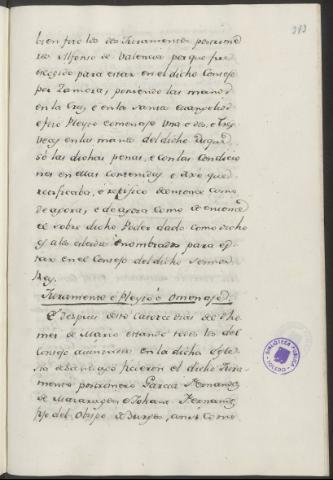 383
bien fizo los dos Juramentos postrime
ros Alfonso de Valencia porque fue
escogido para estar en el dicho Consejo
por Zamora, poniendo las manos
en la Cruz, e en los santos Evangelios
e fizo Pleyto e omenage una e dos e tres
veces en las manos del dicho Duque
so las dichas penas, e con las Condicio
nes en ellas contenidas e dixo que
ratificaba, e ratifico de entonce como
de agora, e de agora como de entonce
el sobre dicho Poder dado como dicho
es a los elexidos e nombrados para es
tar en el Consejo del dicho Sennor
Rey.
Juramento e Pleyto e Omenage.
E despues desto Catorce dias del dho
mes de Marzo estando todos los del
Consejo ayuntados en la dicha Igle
sia de Santiago ficieron el dicho Jura
mento postrimero Garcia Fernandez
de e Johan Fernandez
fijo del Obispo de Burgos, ansi como
BIBLIOTECA PUBLICA
TOLEDO